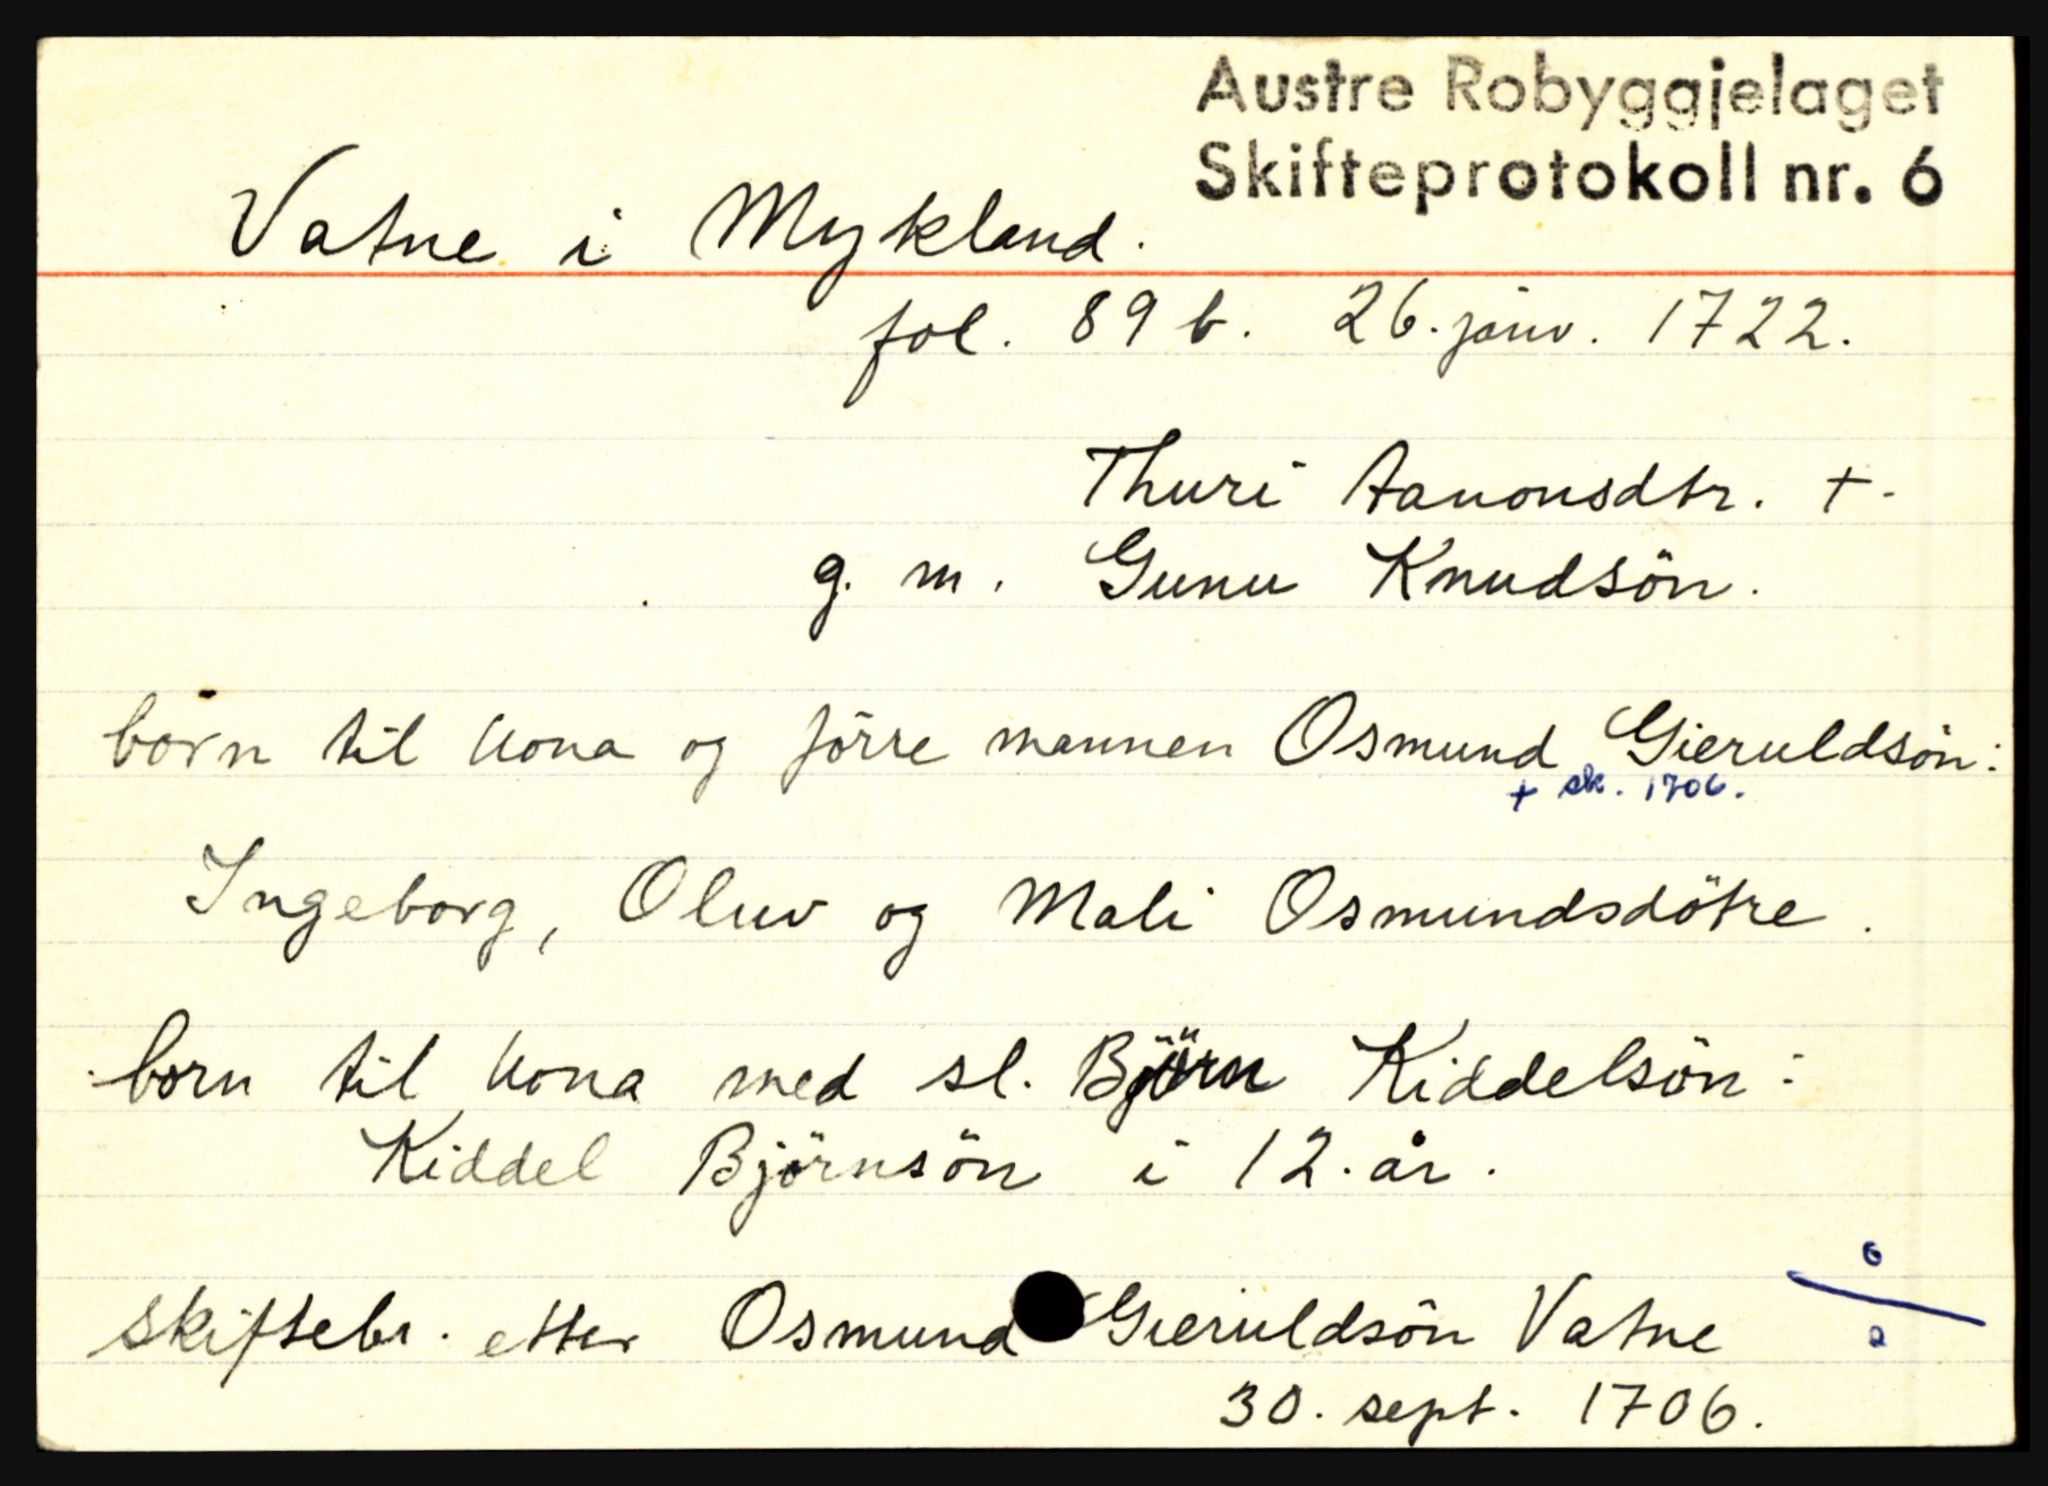 Austre Robyggjelaget
Skifteprotokoll nr. 6
Vatne i Mykland.
fol. 89 b. 26. janv. 1722.
Thuri Aanonsdtr. +.
g. m. Gunu Knudsön.
born til kona og förre mannen Osmund Gieruldsön:
+ sk. 1706.
Ingeborg, Oluv og Mali Osmundsdötre.
born til kona med sl. Björn Kiddelsön:
Kiddel Björnsön i 12. år.
skiftebr. etter Osmund Gieruldsön Vatne
30. sept. 1706.